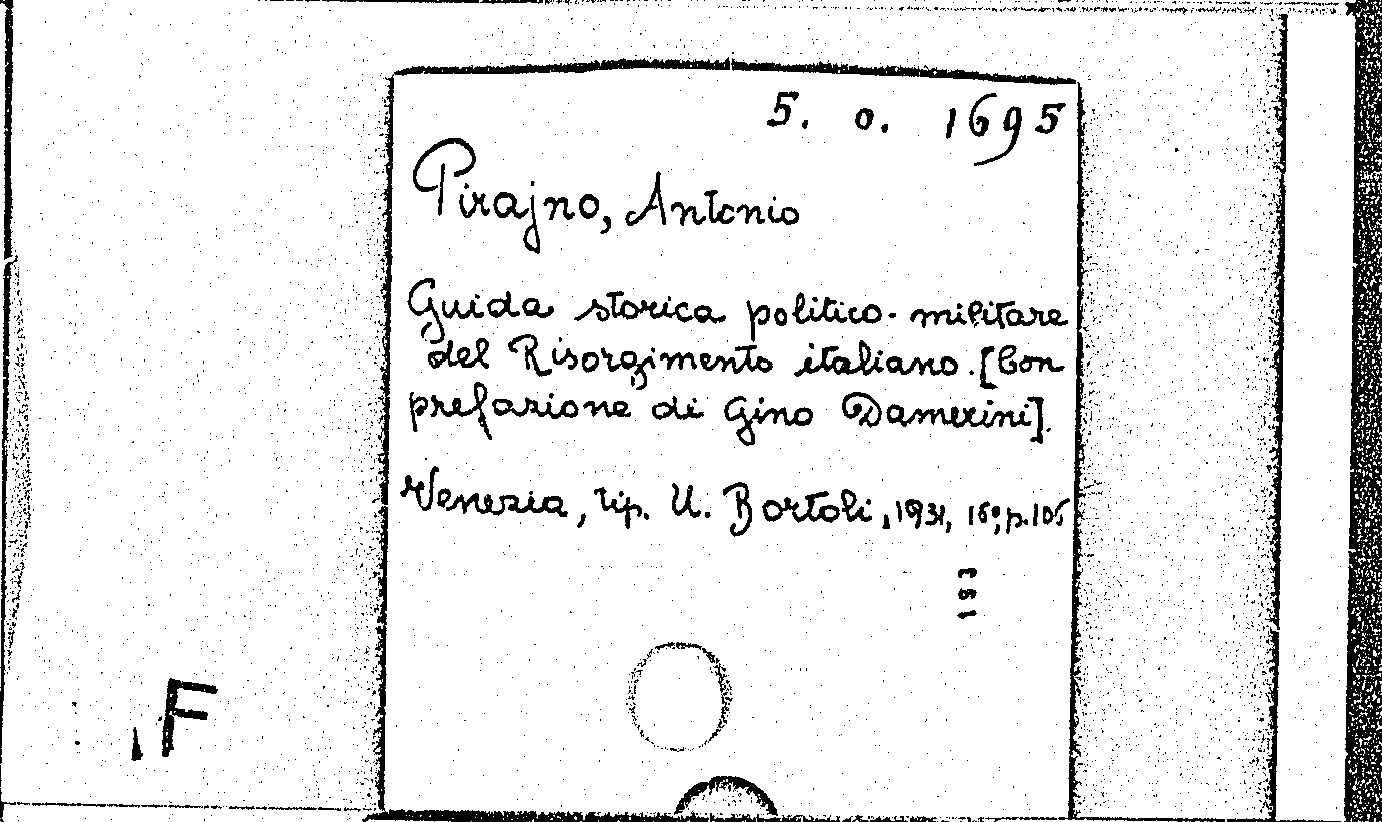 5. o. 1695
Pirajno, Antonio
Guida storica politico-militare
del Risorgimento italiano. [Con
prefazione di Gino Damerini].
Venezia, tip. U. Bortoli, 1931, 16º, p. 105
153
F